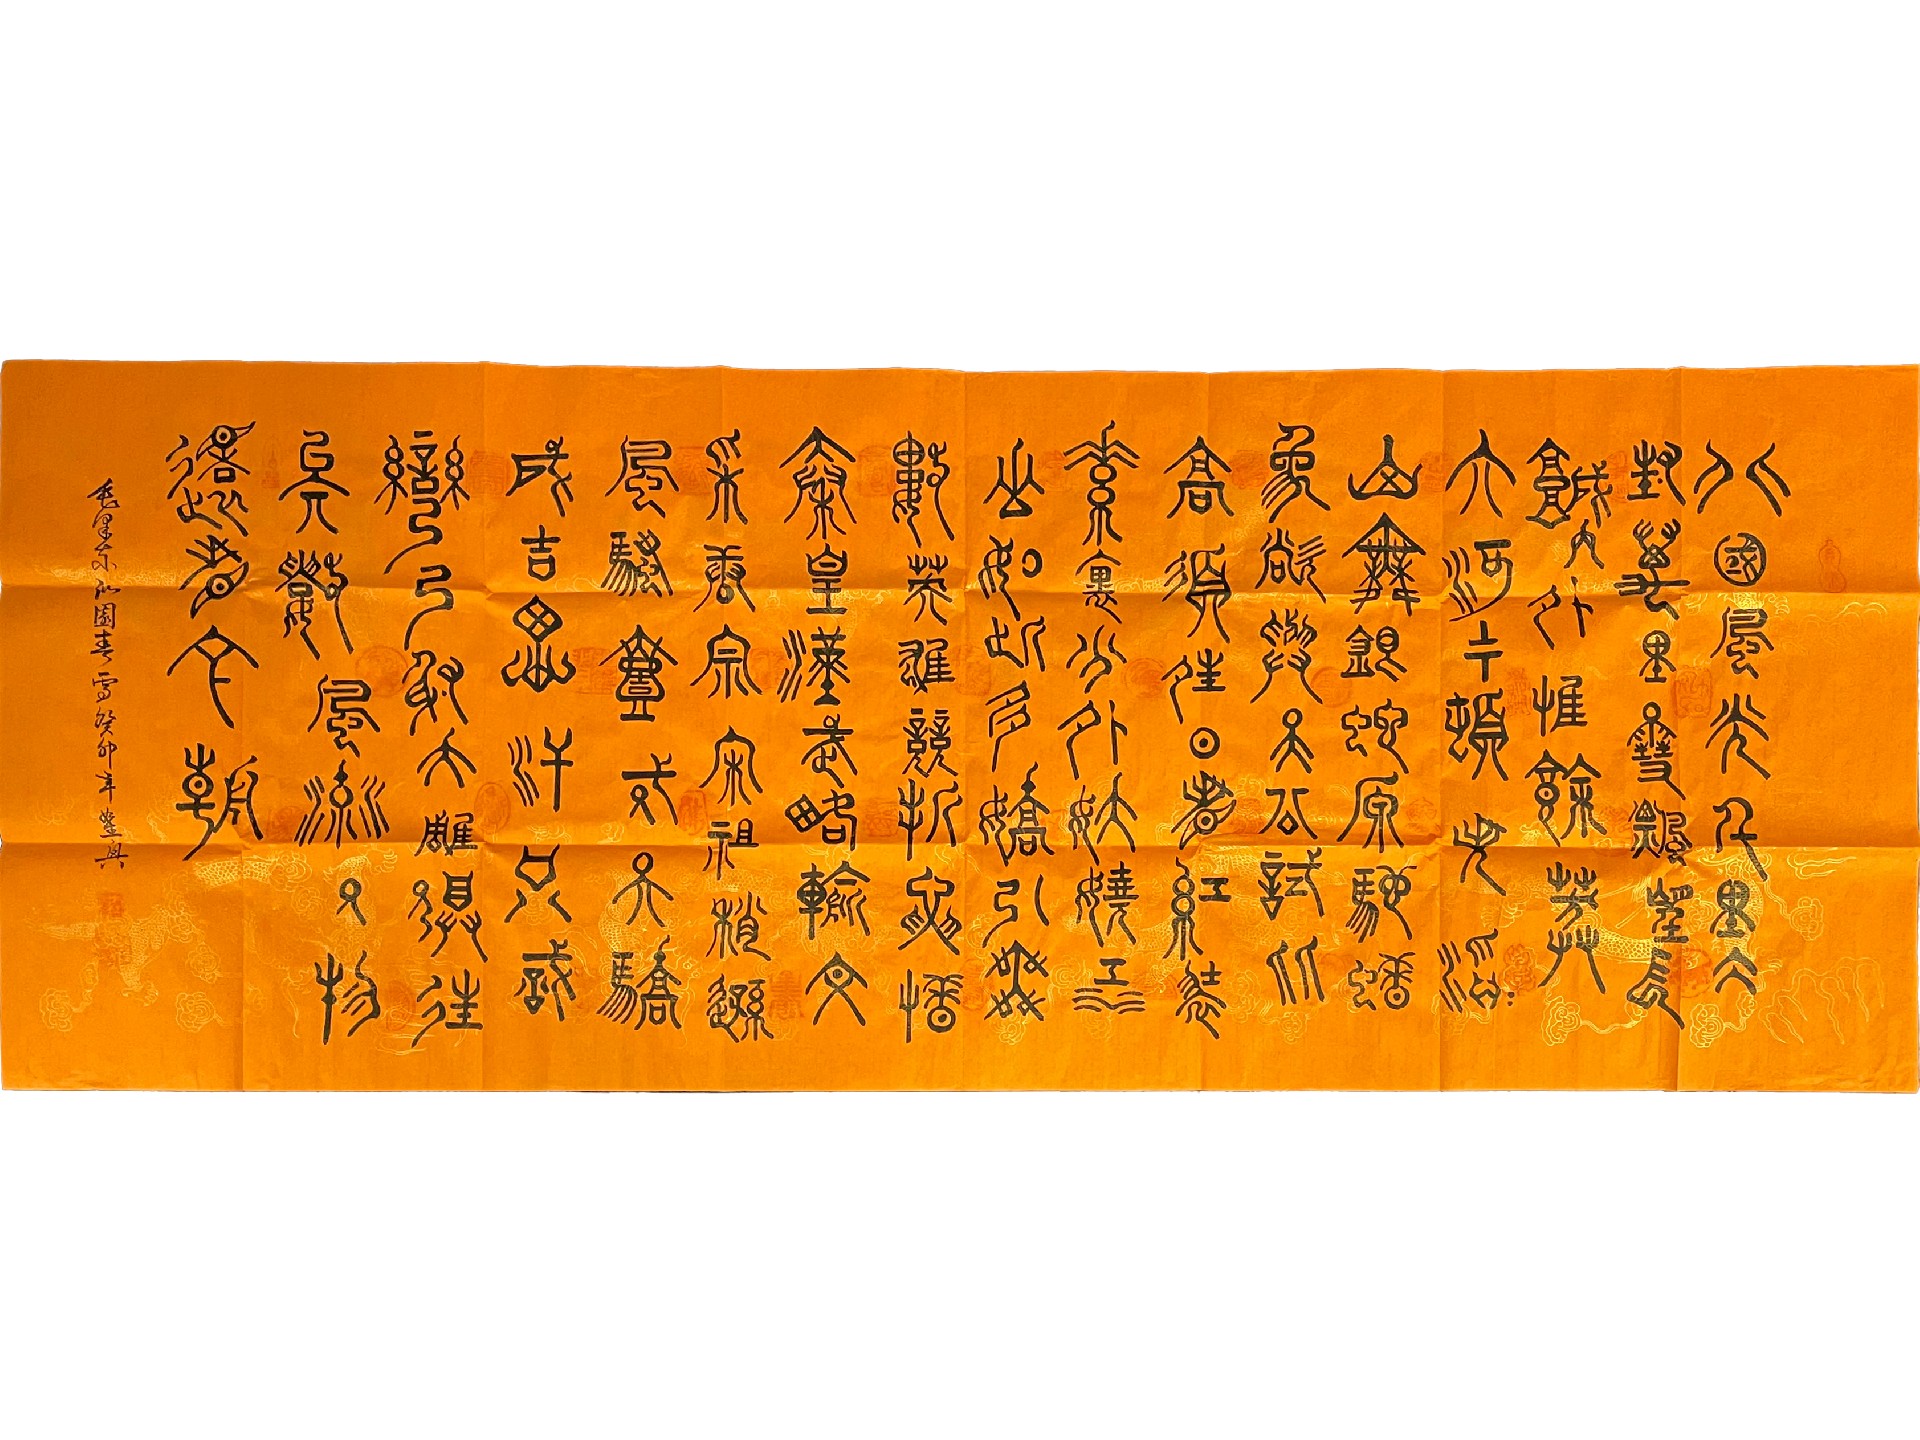 北國風光千里冰
封萬里雪飄望長
城內外惟餘莽莽
大河上下頓失滔滔
山舞銀蛇原馳蠟
象欲與天公試比
高須晴日看紅裝
素裹分外妖嬈江
山如此多嬌引無
數英雄競折腰惜
秦皇漢武略輸文
采唐宗宋祖稍遜
風騷壹代天驕
成吉思汗只識
彎弓射大雕俱往
矣數風流人物
還看今朝
毛泽东沁園春雪癸卯年